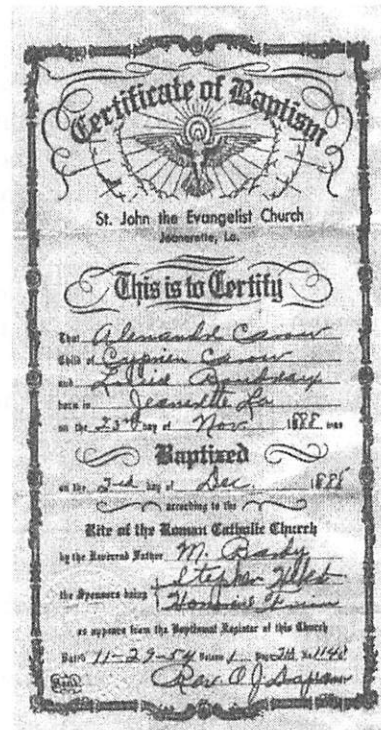 Certificate of Baptism
St. John the Evangelist Church
Jeanerette, La.
This is to Certify
That Alexandre
Child of Cyprien
and Boudreaux
born in Jeanerette La
on the 23rd day of Nov 1888 was
Baptized
on the 2nd day of Dec. 1888
according to the
Rite of the Roman Catholic Church
by the Reverend Father M. Bardy
Stephen
the Sponsors being
as appears from the Baptismal Register of this Church
Dated 11-29-54 Volume 1 Page No. 1148
Rev. O J